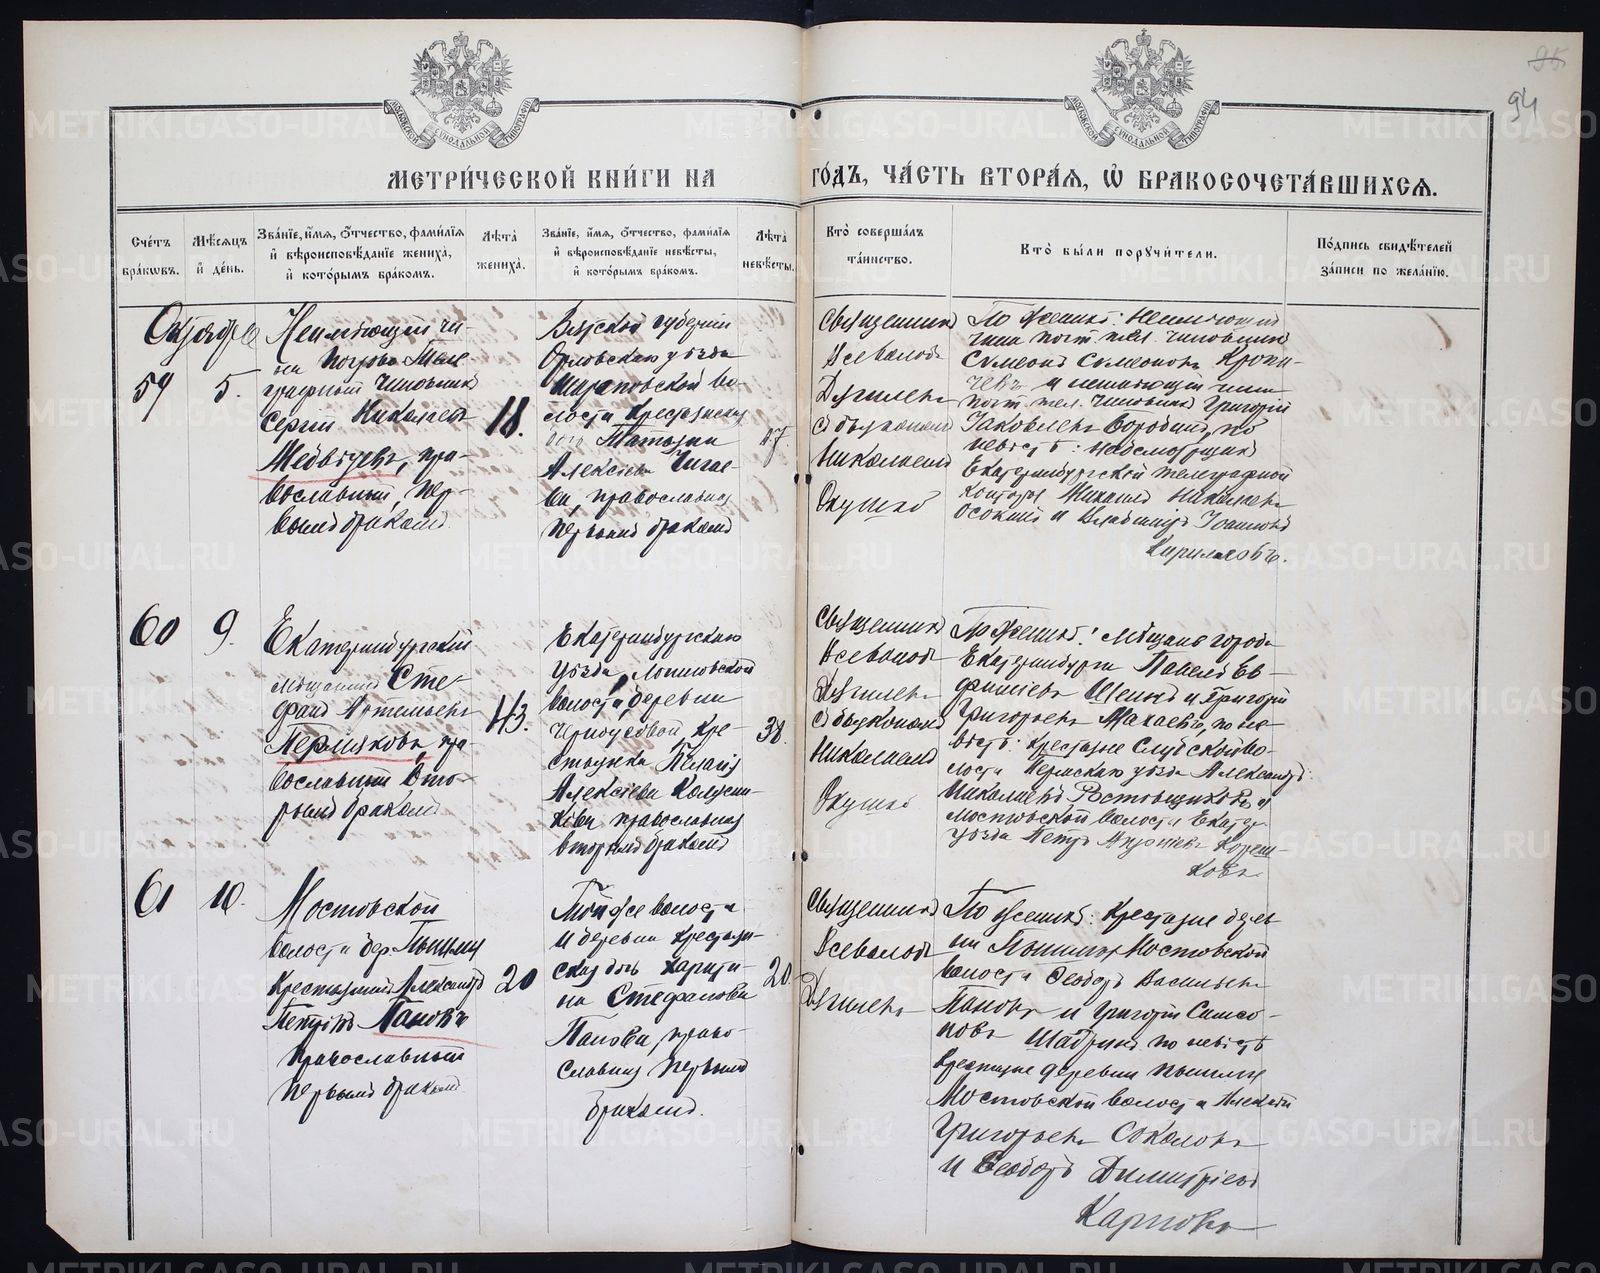 95
94
МЕТРИ́ЧЕСКОЙ КНИ́ГИ НА ГО́ДЪ, ЧА́СТЬ ВТОРА́Я, Ѡ҆ БРАКОСОЧЕТА́ВШИХСЯ.
Сче́тъ бра́ковъ.
Мѣ́сяцъ и҆ де́нь.
Зва́нїе, и҆́мя, ѻ҆́тчество, фами́лїя и҆ вѣроисповѣ́данїе жениха̀, и҆ кото́рымъ бра́комъ.
Лѣ́та̀ жениха̀.
Зва́нїе, и҆́мя, ѻ҆́тчество, фами́лїя и҆ вѣроисповѣ́данїе невѣ́сты, и҆ кото́рымъ бра́комъ.
Лѣ́та̀ невѣ́сты.
Кто̀ соверша́лъ та́инство.
Кто̀ бы́ли порꙋчи́тели.
По́дпись свидѣ́телей за́писи по жела́нїю.
Октябрь
59
5.
Неимѣющій чи-
на Почтово Теле-
графный чиновникъ
Сергій Николаевъ
Медвѣдевъ, пра-
вославный, пер-
вымъ бракомъ.
18.
Вятской губерніи
Орловскаго уѣзда
волости крестьянская
дочь Татьяна
Алексѣева Чигае-
ва, православная
первымъ бракомъ
17.
Священникъ
Всеволодъ
съ діакономъ
Николаемъ
По женихѣ: Неимѣющій
чина почт. тел. чиновникъ
Симеонъ Симеоновъ
и неимѣющій чина
почт. тел. чиновникъ Григорій
Іаковлевъ Бородинъ, по
невѣстѣ: надсмотрщикъ
Екатеринбургской телеграфной
конторы Михаилъ Николаевъ
Осокинъ и Владиміръ Іоанновъ
Кирилловъ.
60
9.
Екатеринбургскій
мѣщанинъ Сте-
фанъ Артемьевъ
Пермяковъ, пра-
вославный вто-
рымъ бракомъ
43.
Екатеринбургскаго
уѣзда,
волости, деревни
кре-
стьянка Пелагія
Алексѣева
кова, православная
вторымъ бракомъ
38.
Священникъ
Всеволодъ
съ діакономъ
Николаемъ
По женихѣ: Мѣщане города
Екатеринбурга Павелъ Ев-
фиміевъ и Григорій
Григорьевъ Махаевъ, по не-
вѣстѣ: крестьяне во-
лости Пермскаго уѣзда Александръ
Николаевъ Ростовщиковъ и
Мостовской волости Екатер.
уѣзда Петръ
ковъ
61
10.
Мостовской
волости дер. Пышмы
крестьянинъ Александръ
Петровъ Пановъ
православный
первымъ бракомъ
20
Той же волости
и деревни крестьян-
ская дочь Харити-
на Стефанова
Панова, право-
славная первымъ
бракомъ.
20.
Священникъ
Всеволодъ
По женихѣ: крестьяне дерев-
ни Пышмы Мостовской
волости Ѳеодоръ Васильевъ
Пановъ и Григорій Самсо-
новъ Шабринъ по невѣстѣ
крестьяне деревни Пышмы
Мостовской волости Алексѣй
Григорьевъ Соколовъ
и Ѳеодоръ Димитріевъ
Карповъ
METRIKI.GASO-URAL.RU